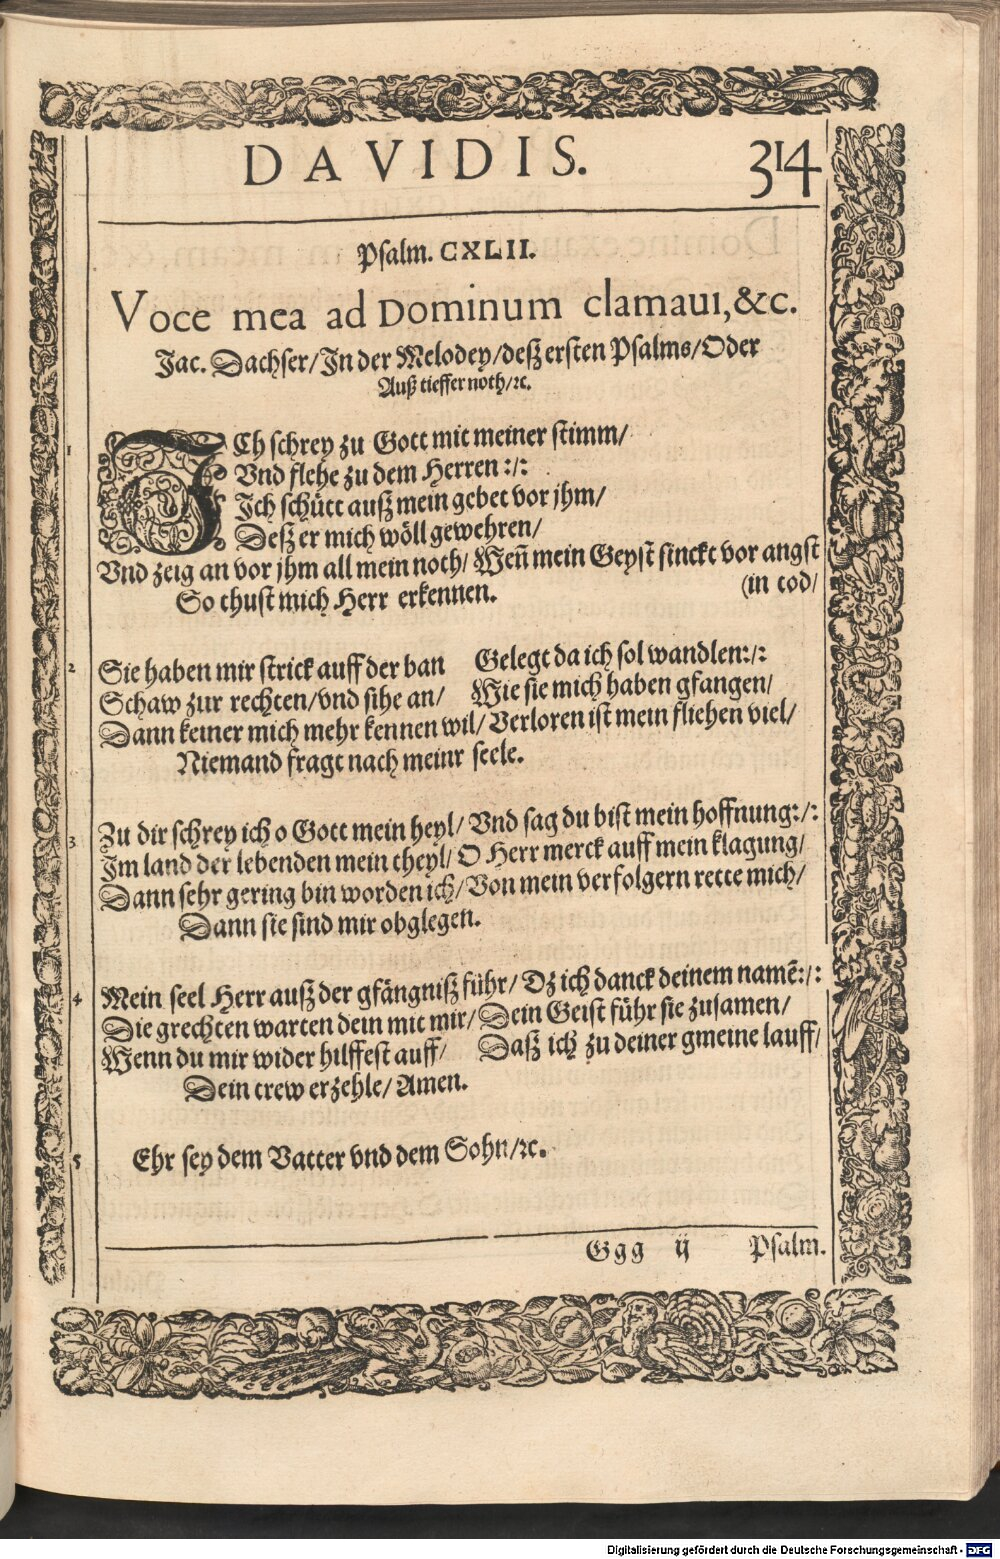 DAVIDIS. 314
Psalm. CXLII.
Voce mea ad Dominum clamaui, &c.
Jac. Dachser/ In der Melodey/ deß ersten Psalms/ Oder
Auß tieffer noth/ ꝛc.
1 ICh schrey zu Gott mit meiner stimm/
Vnd flehe zu dem Herren :/:
Ich schütt auß mein gebet vor jhm/
Deß er mich wöll gewehren/
Vnd zeig an vor jhm all mein noth/ Weñ mein Geyst sinckt vor angst
So thust mich Herr erkennen. (in tod/
2 Sie haben mir strick auff der ban Gelegt da ich sol wandlen:/:
Schaw zur rechten/ vnd sihe an/ Wie sie mich haben gfangen/
Dann keiner mich mehr kennen wil/ Verloren ist mein fliehen viel/
Niemand fragt nach meinr seele.
3 Zu dir schrey ich o Gott mein heyl/ Vnd sag du bist mein hoffnung:/:
Im land der lebenden mein theyl/ O Herr merck auff mein klagung/
Dann sehr gering bin worden ich/ Von mein verfolgern rette mich/
Dann sie sind mir obglegen.
4 Mein seel Herr auß der gfängniß führ/ Dz ich danck deinem namẽ:/:
Die grechten warten dein mit mir/ Dein Geist führ sie zusamen/
Wenn du mir wider hilffest auff/ Daß ich zu deiner gmeine lauff/
Dein trew erzehle/ Amen.
5 Ehr sey dem Vatter vnd dem Sohn/ ꝛc.
Ggg ij Psalm.
Digitalisierung gefördert durch die Deutsche Forschungsgemeinschaft - DFG